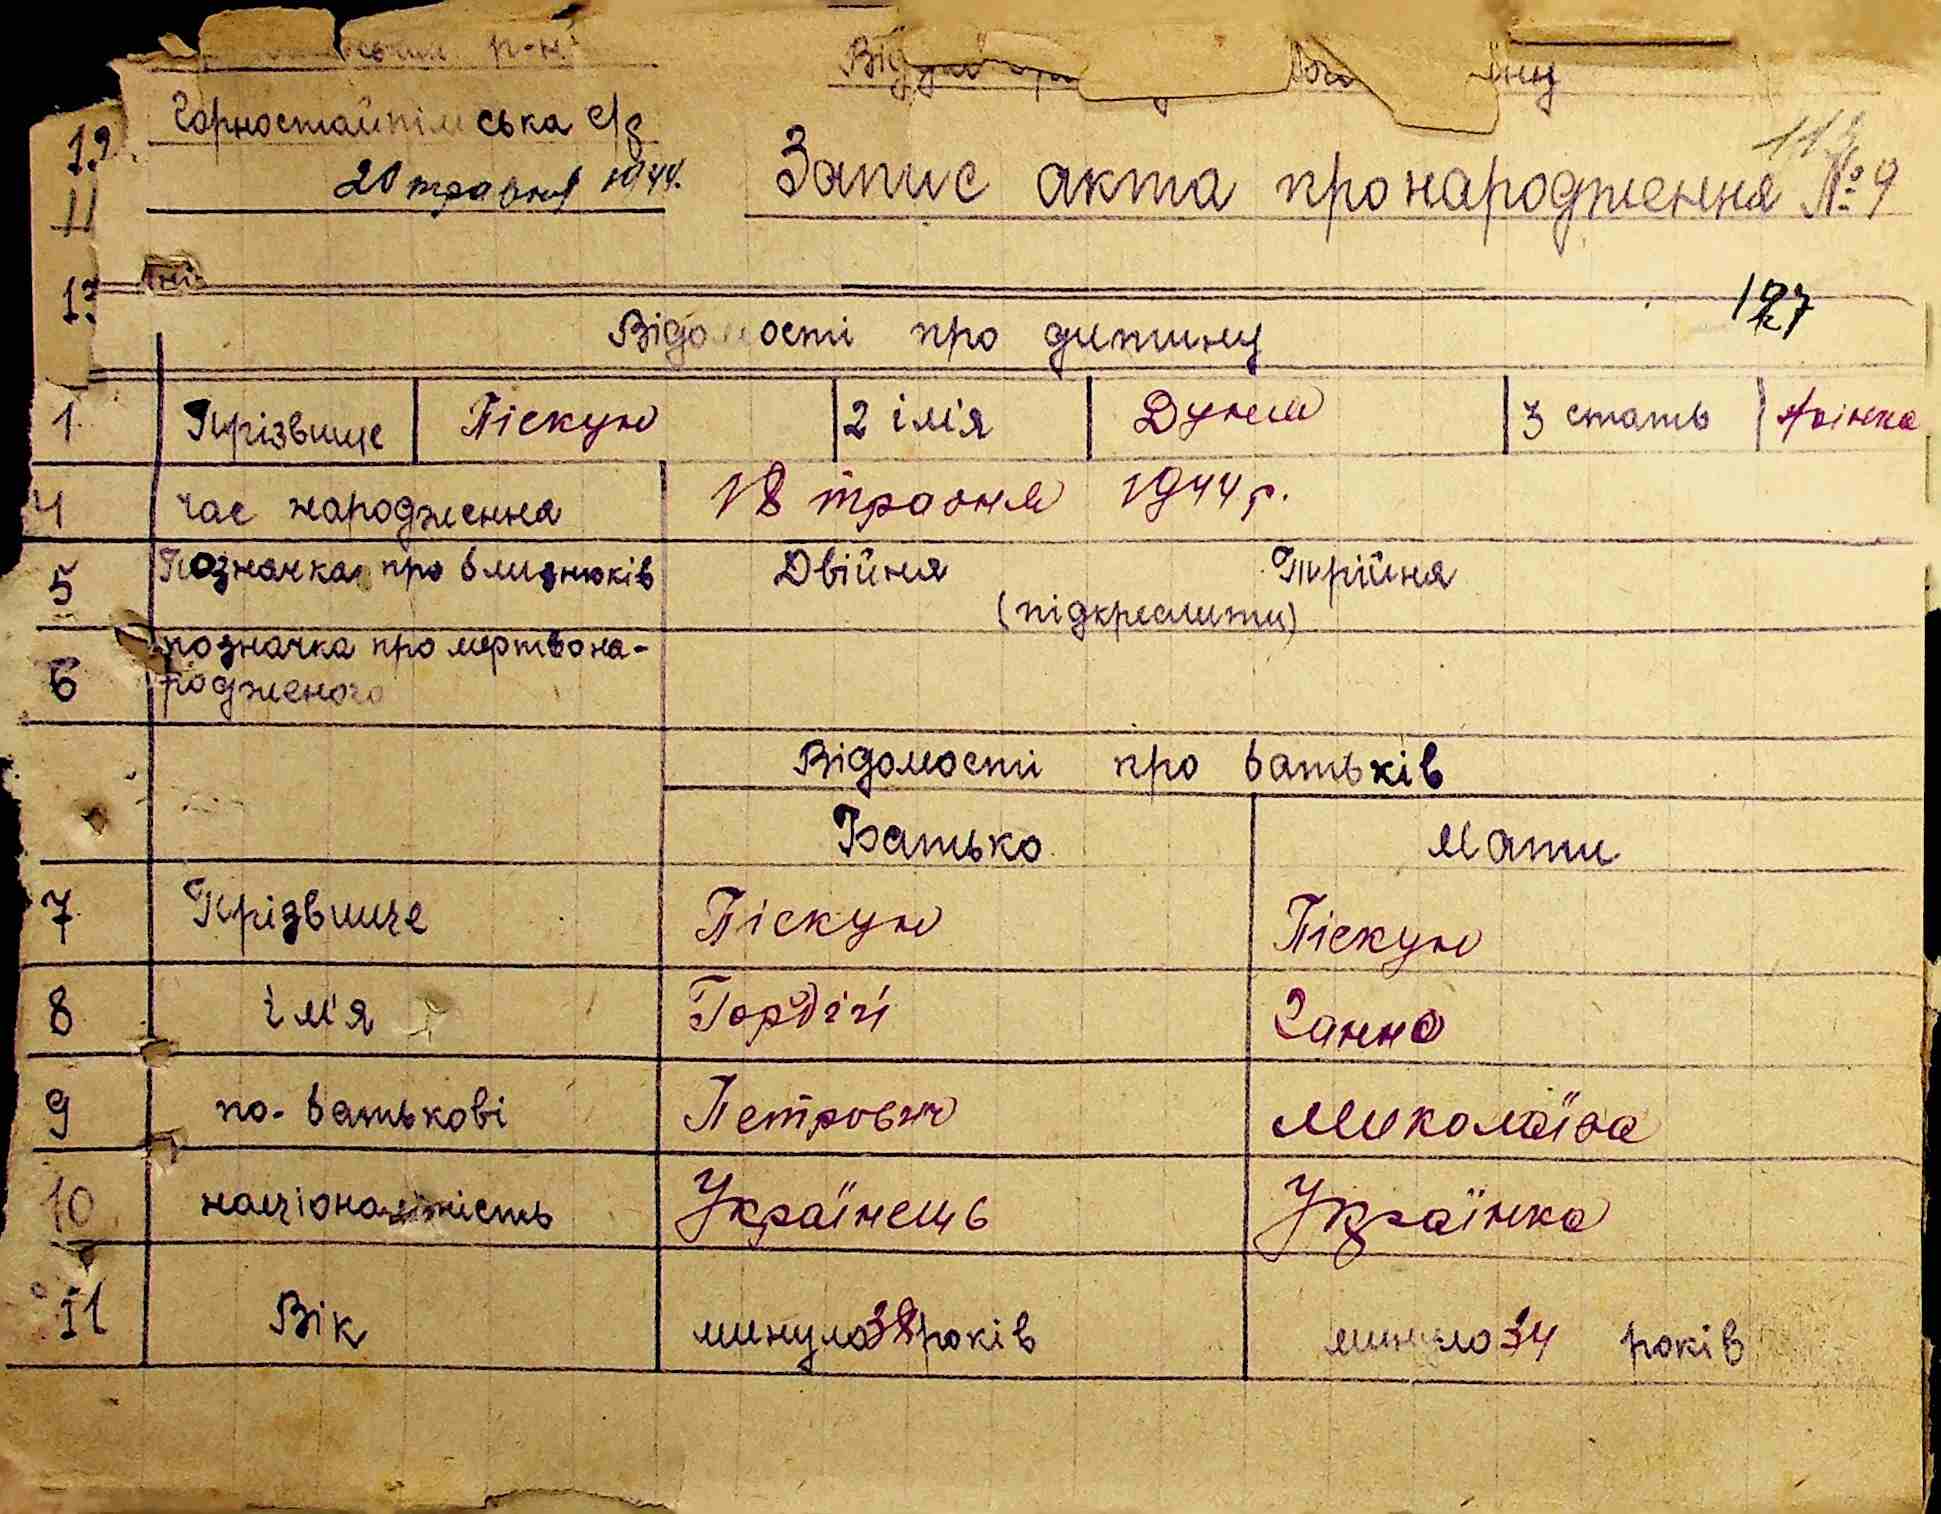 р-ні
Горностайпільська с/р
20 травня 1944.
Запис акта про народження №9
19
11
13
127
Відомості про дитину
1 Прізвище Піскун 2 ім'я Дуня 3 стать жінка
4 час народження 18 травня 1944 р.
5 Позначка про близнюків Двійня Трійня
(підкреслити)
6 позначка про мертвона-
родженого
Відомості про батьків
Батько Мати
7 Прізвище Піскун Піскун
8 ім'я Гордій Ганна
9 по-батькові Петрович Миколаїва
10 національність Українець Українка
11 Вік минуло 38 років минуло 34 років